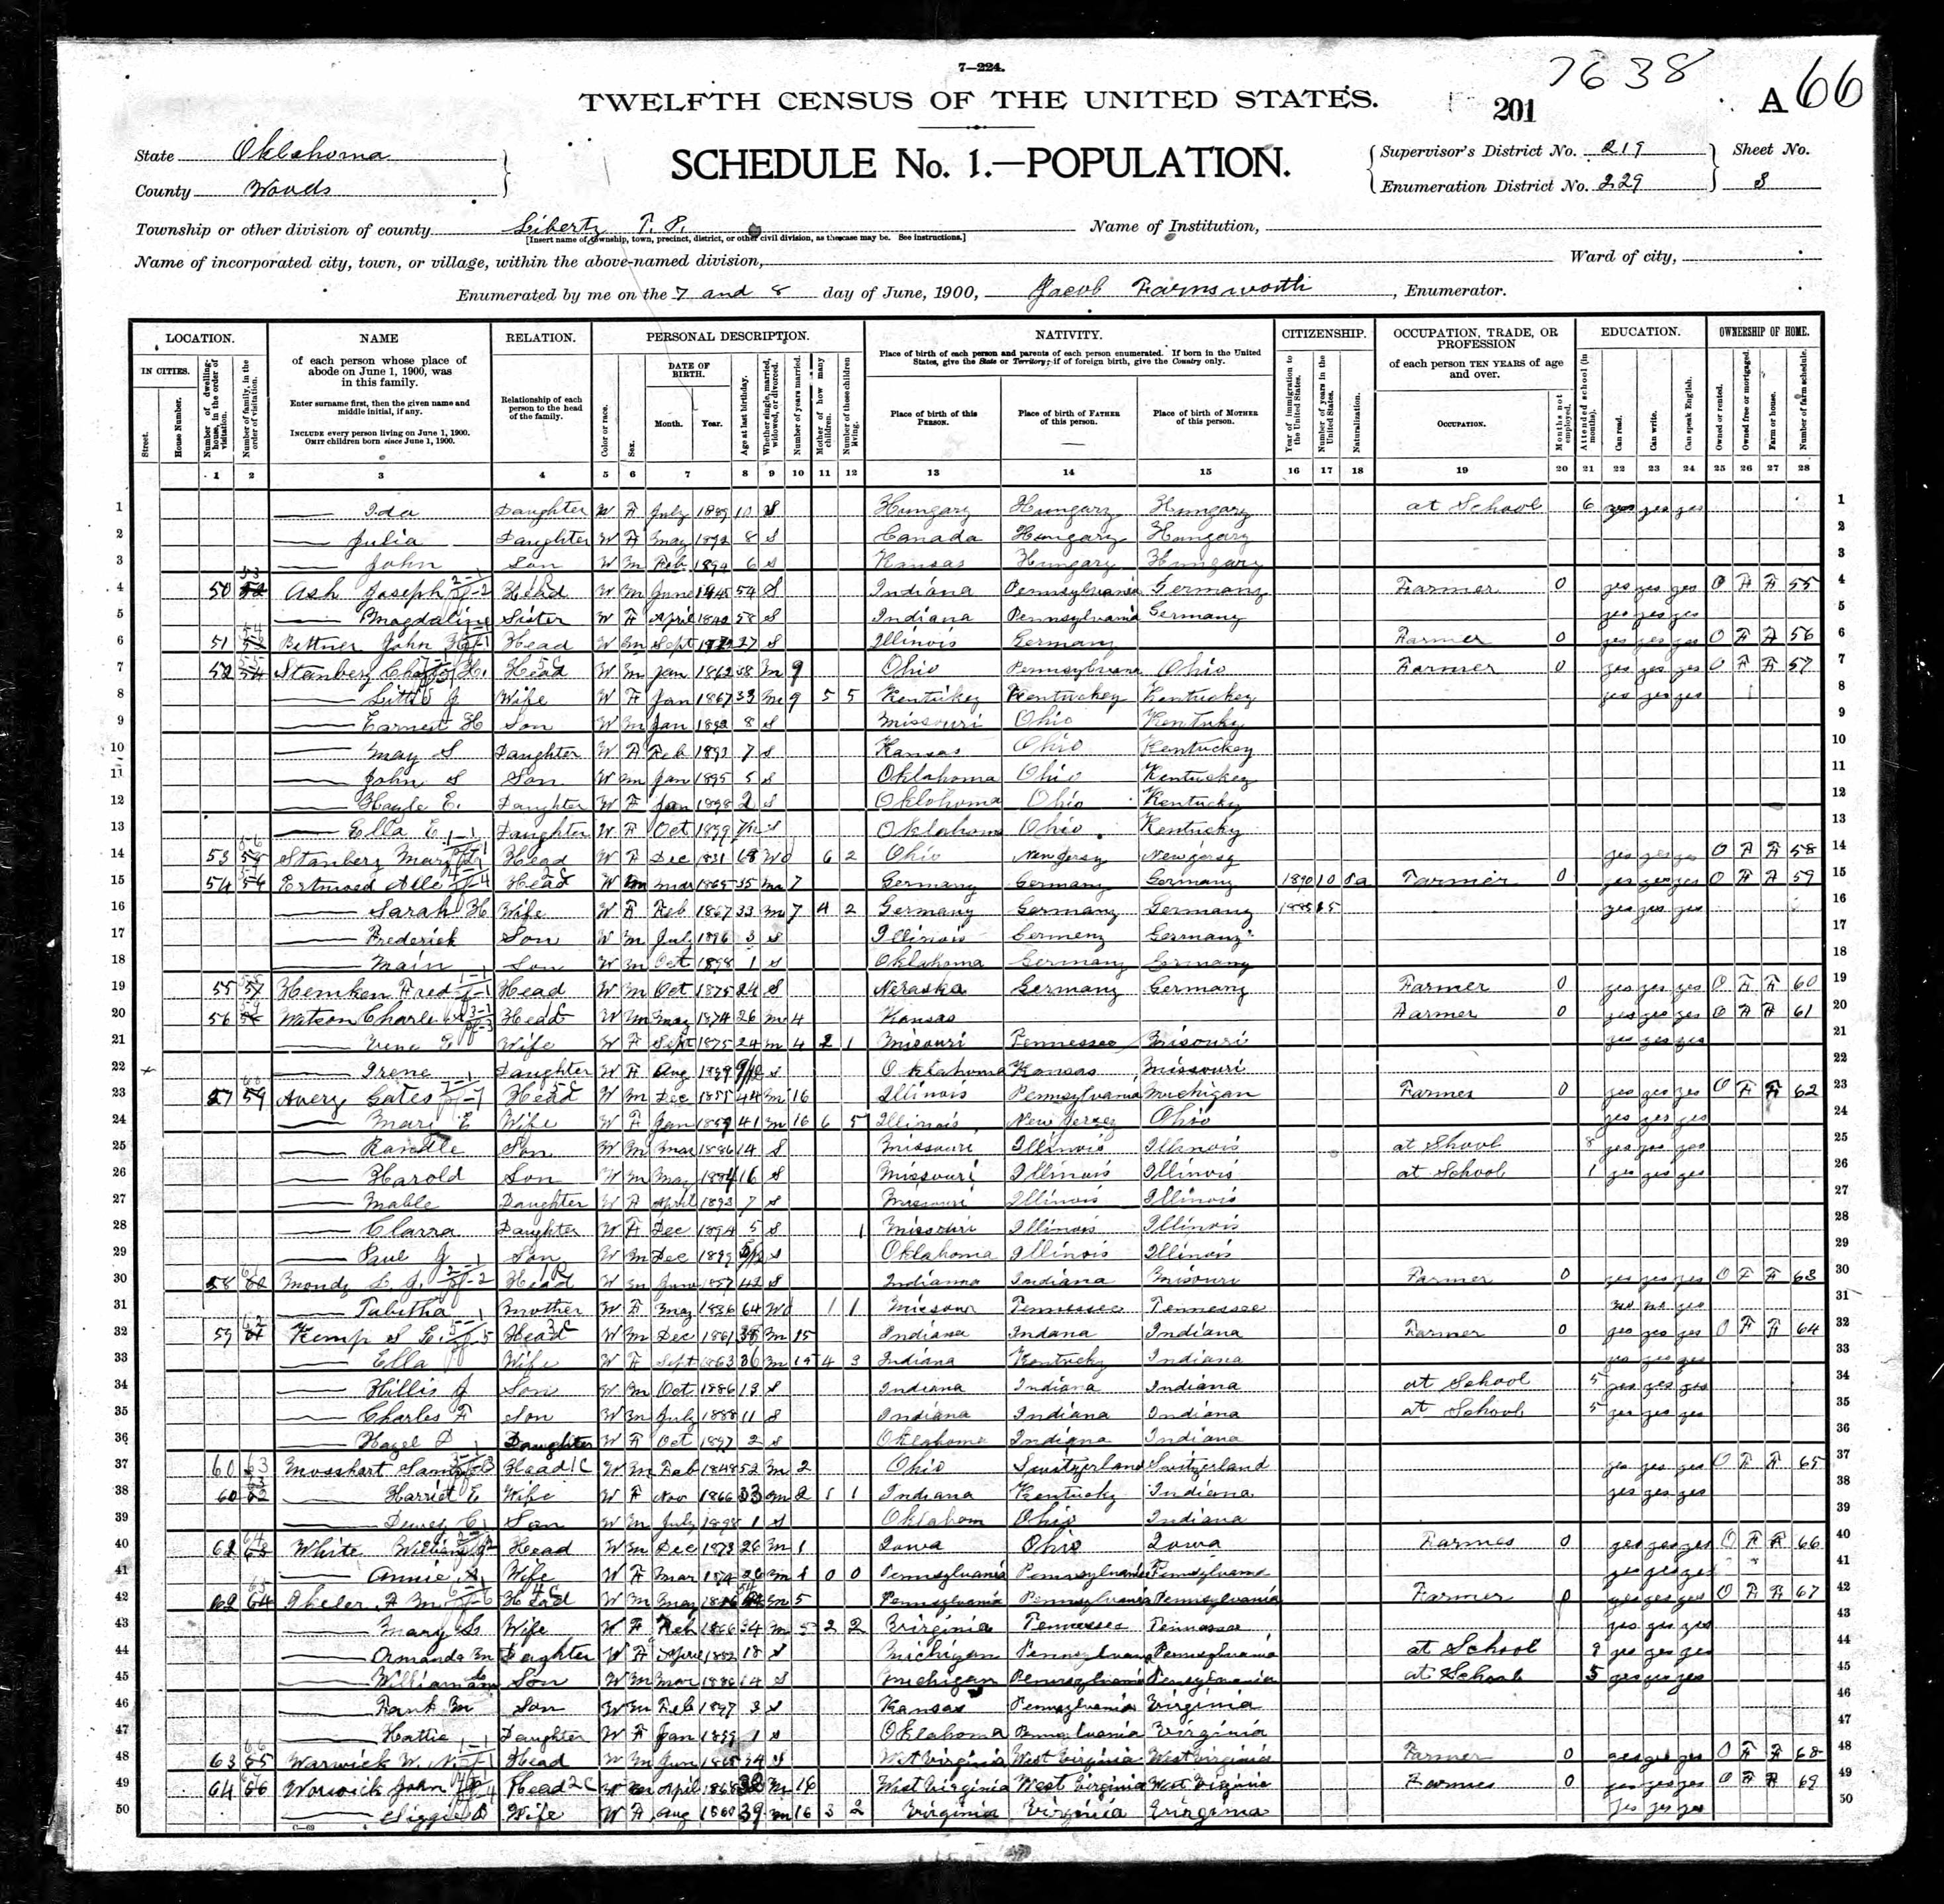 7—224.
7638
TWELFTH CENSUS OF THE UNITED STATES.
201
A 66
State Oklahoma
County Woods
SCHEDULE No. 1.—POPULATION.
Supervisor's District No. 219
Enumeration District No. 229
Sheet No.
8
Township or other division of county Liberty T. P.
[Insert name of township, town, precinct, district, or other civil division, as the case may be. See instructions.]
Name of Institution,
Name of incorporated city, town, or village, within the above-named division,
Ward of city,
Enumerated by me on the 7 and 8 day of June, 1900, Jacob Farnsworth, Enumerator.
LOCATION. NAME RELATION. PERSONAL DESCRIPTION. NATIVITY. CITIZENSHIP. OCCUPATION, TRADE, OR PROFESSION EDUCATION. OWNERSHIP OF HOME.
IN CITIES. Street. House Number. Number of dwelling-house, in the order of visitation. Number of family, in the order of visitation.
of each person whose place of abode on June 1, 1900, was in this family.
Enter surname first, then the given name and middle initial, if any.
INCLUDE every person living on June 1, 1900.
OMIT children born since June 1, 1900.
Relationship of each person to the head of the family.
Color or race. Sex. DATE OF BIRTH. Month. Year. Age at last birthday. Whether single, married, widowed, or divorced. Number of years married. Mother of how many children. Number of these children living.
Place of birth of each person and parents of each person enumerated. If born in the United States, give the State or Territory; if of foreign birth, give the Country only.
Place of birth of this PERSON. Place of birth of FATHER of this person. Place of birth of MOTHER of this person.
Year of immigration to the United States. Number of years in the United States. Naturalization.
of each person TEN YEARS of age and over.
OCCUPATION. Months not employed.
Attended school (in months). Can read. Can write. Can speak English.
Owned or rented. Owned free or mortgaged. Farm or house. Number of farm schedule.
1 2 3 4 5 6 7 8 9 10 11 12 13 14 15 16 17 18 19 20 21 22 23 24 25 26 27 28
1 Ida Daughter W F July 1889 10 S Hungary Hungary Hungary at School 6 yes yes yes 1
2 Julia Daughter W F May 1892 8 S Canada Hungary Hungary 2
3 John Son W M Feb 1894 6 S Kansas Hungary Hungary 3
4 50 Ash Joseph Head W M June 1845 54 S Indiana Pennsylvania Germany Farmer 0 yes yes yes O F F 55 4
5 Magdaline Sister W F April 1842 58 S Indiana Pennsylvania Germany yes yes yes 5
6 51 Bettner John Head W M Sept 27 S Illinois Germany Farmer 0 yes yes yes O F F 56 6
7 52 Stanbery H. Head W M Jan 1862 38 M 9 Ohio Pennsylvana Ohio Farmer 0 yes yes yes O F F 57 7
8 J Wife W F Jan 1867 33 M 9 5 5 Kentukey Kentuckey Kentuckey yes yes yes 8
9 Earnest H Son W M Jan 1892 8 S Missouri Ohio Kentuky 9
10 May S Daughter W F Feb 1893 7 S Kansas Ohio Kentuckey 10
11 John S Son W M Jan 1895 5 S Oklahoma Ohio Kentuckey 11
12 E. Daughter W F Jan 1898 2 S Oklohoma Ohio Kentucky 12
13 Ella E Daughter W F Oct 1899 7/12 S Oklahoma Ohio Kentucky 13
14 53 Stanbery Mary Head W F Dec 1831 68 Wd 6 2 Ohio New Jersy New jersy yes yes yes O F F 58 14
15 54 Head W M Mar 1865 35 M 7 Germany Germany Germany 1890 10 Farmer 0 yes yes yes O F F 59 15
16 Sarah H Wife W F Feb 1867 33 M 7 4 2 Germany Germany Germany 1885 15 yes yes yes 16
17 Frederick Son W M July 1896 3 S Illinois Germeny Germany 17
18 Son W M Oct 1898 1 S Oklahoma Germany Germany 18
19 55 57 Hemken Fred Head W M Oct 1875 24 S Neraska Germany Germany Farmer 0 yes yes yes O F F 60 19
20 56 Watson Charle Head W M May 1874 26 M 4 Kansas Farmer 0 yes yes yes O F F 61 20
21 Wife W F Sept 1875 24 M 4 2 1 Misouri Tennessee Misouri yes yes yes 21
22 Irene Daughter W F Aug 1899 9/12 S Oklahoma Kansas Missouri 22
23 57 59 Avery Gates Head W M Dec 1855 44 M 16 Illinois Pennsylvania Michigan Farmer 0 yes yes yes O F F 62 23
24 Mari E Wife W F Jan 1859 41 M 16 6 5 Illinois New Jersey Ohio yes yes yes 24
25 Son W M Mar 1886 14 S Missouri Illinois Illinois at Shool 8 yes yes yes 25
26 Harold Son W M May 1884 16 S Missouri Illinois Illinois at School 1 yes yes yes 26
27 Mable Daughter W F April 1893 7 S Missouri Illinois Illinois 27
28 Clarra Daughter W F Dec 1894 5 S Missouri Illinois Illinois 28
29 Paul J Son W M Dec 1899 5/12 S Oklahoma Illinois Illinois 29
30 58 Mondy L. J. Head W M June 1857 42 S Indianna Indiana Misouri Farmer 0 yes yes yes O F F 63 30
31 Tabitha Mother W F May 1836 64 Wd 1 1 Missour Tennessee Tennessee no no yes 31
32 59 Kemp S E. Head W M Dec 1861 38 M 15 Indiana Indana Indiana Farmer 0 yes yes yes O F F 64 32
33 Ella Wife W F Sept 1863 36 M 15 4 3 Indiana Kentucky Indiana yes yes yes 33
34 Hillis J Son W M Oct 1886 13 S Indiana Indiana Indiana at School 5 yes yes yes 34
35 Charles F Son W M July 1888 11 S Indiana Indiana Indiana at School 5 yes yes yes 35
36 Hazel D Daughter W F Oct 1897 2 S Oklahoma Indiana Indiana 36
37 60 63 Mosshart Head W M Feb 1848 52 M 2 Ohio Switzerland Switzerland yes yes yes O F F 65 37
38 Harriet E Wife W F Nov 1866 33 M 2 1 1 Indiana Kentucky Indiana yes yes yes 38
39 Dewey C Son W M July 1898 1 S Oklahom Ohio Indiana 39
40 White William Head W M Dec 1873 26 M 1 Iowa Ohio Iowa Farmes 0 yes yes yes O F F 66 40
41 Annie A. Wife W F Mar 26 M 1 0 0 Pennsylvania Pennsylvania Pennsylvania yes yes yes 41
42 62 64 Iheler F M. Head W M May M 5 Pennsylvania Pennsylvania Pennsylvania Farmer 0 yes yes yes O F F 67 42
43 Mary L. Wife W F Feb 1866 34 M 5 2 2 Virginia Tennessee Tennessee yes yes yes 43
44 Armanda M Daughter W F April 1882 18 S Michigan Pennsylvania Pennsylvania at School 9 yes yes yes 44
45 William Son W M Mar 1886 14 S Michigan Pennsylvania Pensylvania at School 5 yes yes yes 45
46 Frank M Son W M Feb 1897 3 S Kansas Pennsylvania Virginia 46
47 Hattie Daughter W F Jan 1899 1 S Oklahoma Pennsylvania Virginia 47
48 63 65 Warwick W. N. Head W M June 1865 34 S West Virginia West Virginia West Virginia Farmer 0 yes yes yes O F F 68 48
49 64 66 Warwick John Head W M April 1868 M 16 West Virginia West Virginia West Virginia Farmes 0 yes yes yes O F F 69 49
50 D Wife W F Aug 1860 39 M 16 3 2 Virginia Virginia Virginia yes yes yes 50